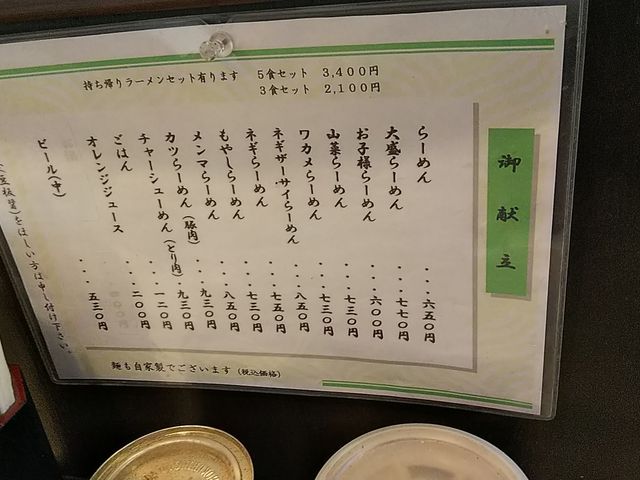 持ち帰りラーメンセット有ります 5食セット 3,400円
3食セット 2,100円
御献立
らーめん ・・・六五〇円
大盛らーめん ・・・七七〇円
お子様らーめん ・・・六〇〇円
山菜らーめん ・・・七三〇円
ワカメらーめん ・・・七三〇円
ネギザーサイらーめん ・・・八五〇円
ネギらーめん ・・・七五〇円
もやしらーめん ・・・七三〇円
メンマらーめん ・・・八五〇円
カツらーめん(豚肉) ・・・九三〇円
チャーシューめん(とり肉) ・・・九三〇円
ごはん ・・・一二〇円
オレンジジュース ・・・二〇〇円
ビール(中) ・・・五三〇円
(豆板醤)をほしい方は申し付け下さい。
麺も自家製でございます (税込価格)